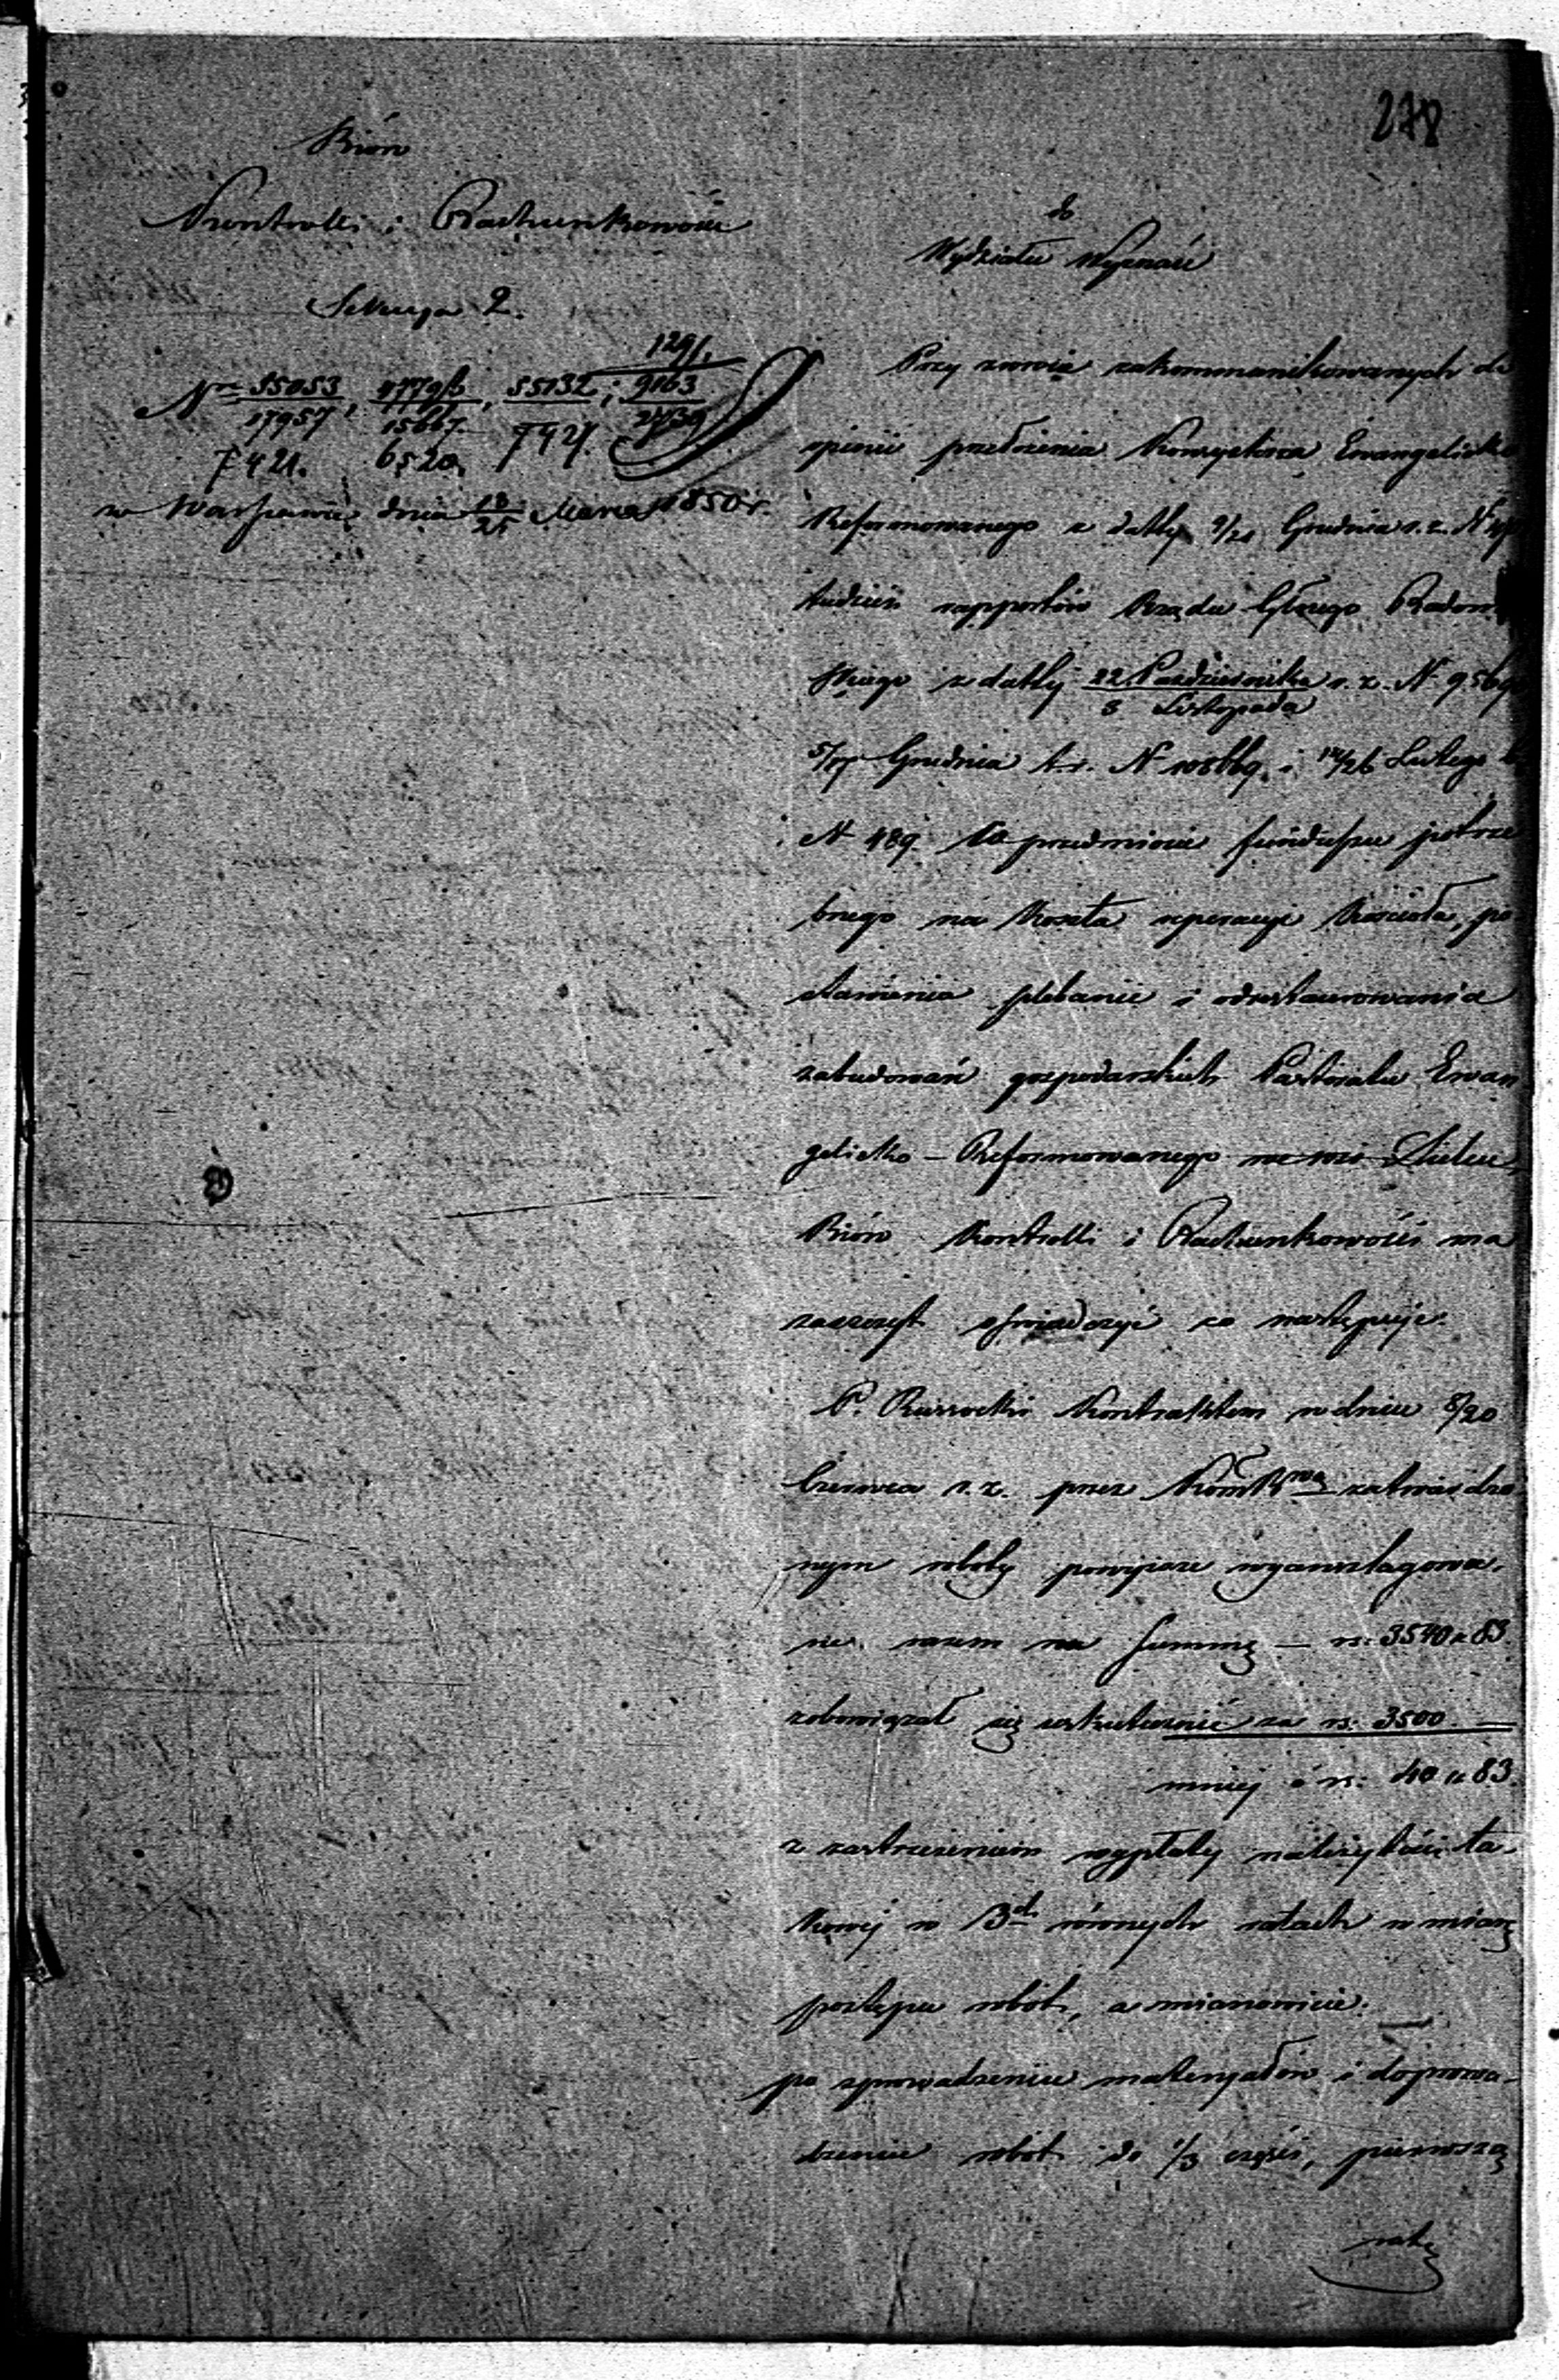 278
Biuro
Kontrolli i Rachunkowości
Sekcya 2.
1291.
Nra 55053, 47796, 55132; 9163
17957 15667. 7421. 2439
7421. 6520.
w Warszawie dnia 13/25 Marca 1850 r.
do
Wydziału Wyznań
Przy zwrocie zakommunikowanych do
opinii przełożenia Konsystorza Ewangelicko
Reformowanego z datty 9/21 Grudnia r. z. N
tudzież rapportów Rządu Gubgo Radom
skiego z datty 22 Października / 3 Listopada r. z. N 956
5/17 Grudnia t. r. N i 14/26 Lutego
N 489. w przedmiocie funduszu potrze
bnego na koszta reperacyi kościoła, po
stawienia plebanii i odrestaurowania
zabudowań gospodarskich Pastoratu Ewan
gelicko – Reformowanego we wsi
Biuro Kontrolli i Rachunkowości ma
zaszczyt oświadczyć co następuje.
P. Russocki kontraktem w dniu 8/20
Czerwca r. z. przez zatwierdzo
nym roboty powyższe wyanszlagowa-
ne razem na summę – rs: 3540 k 83.
zobowiązał się uskutecznić za rs: 3500 —
mniej o rs: 40 k 83.
z zastrzeżeniem wypłaty należytości ta-
kowej w 3ch równych ratach w miarę
postępu robót, a mianowicie:
po sprowadzeniu materyałów i doprowa-
dzeniu robót do 1/3 części, pierwszą
ratę